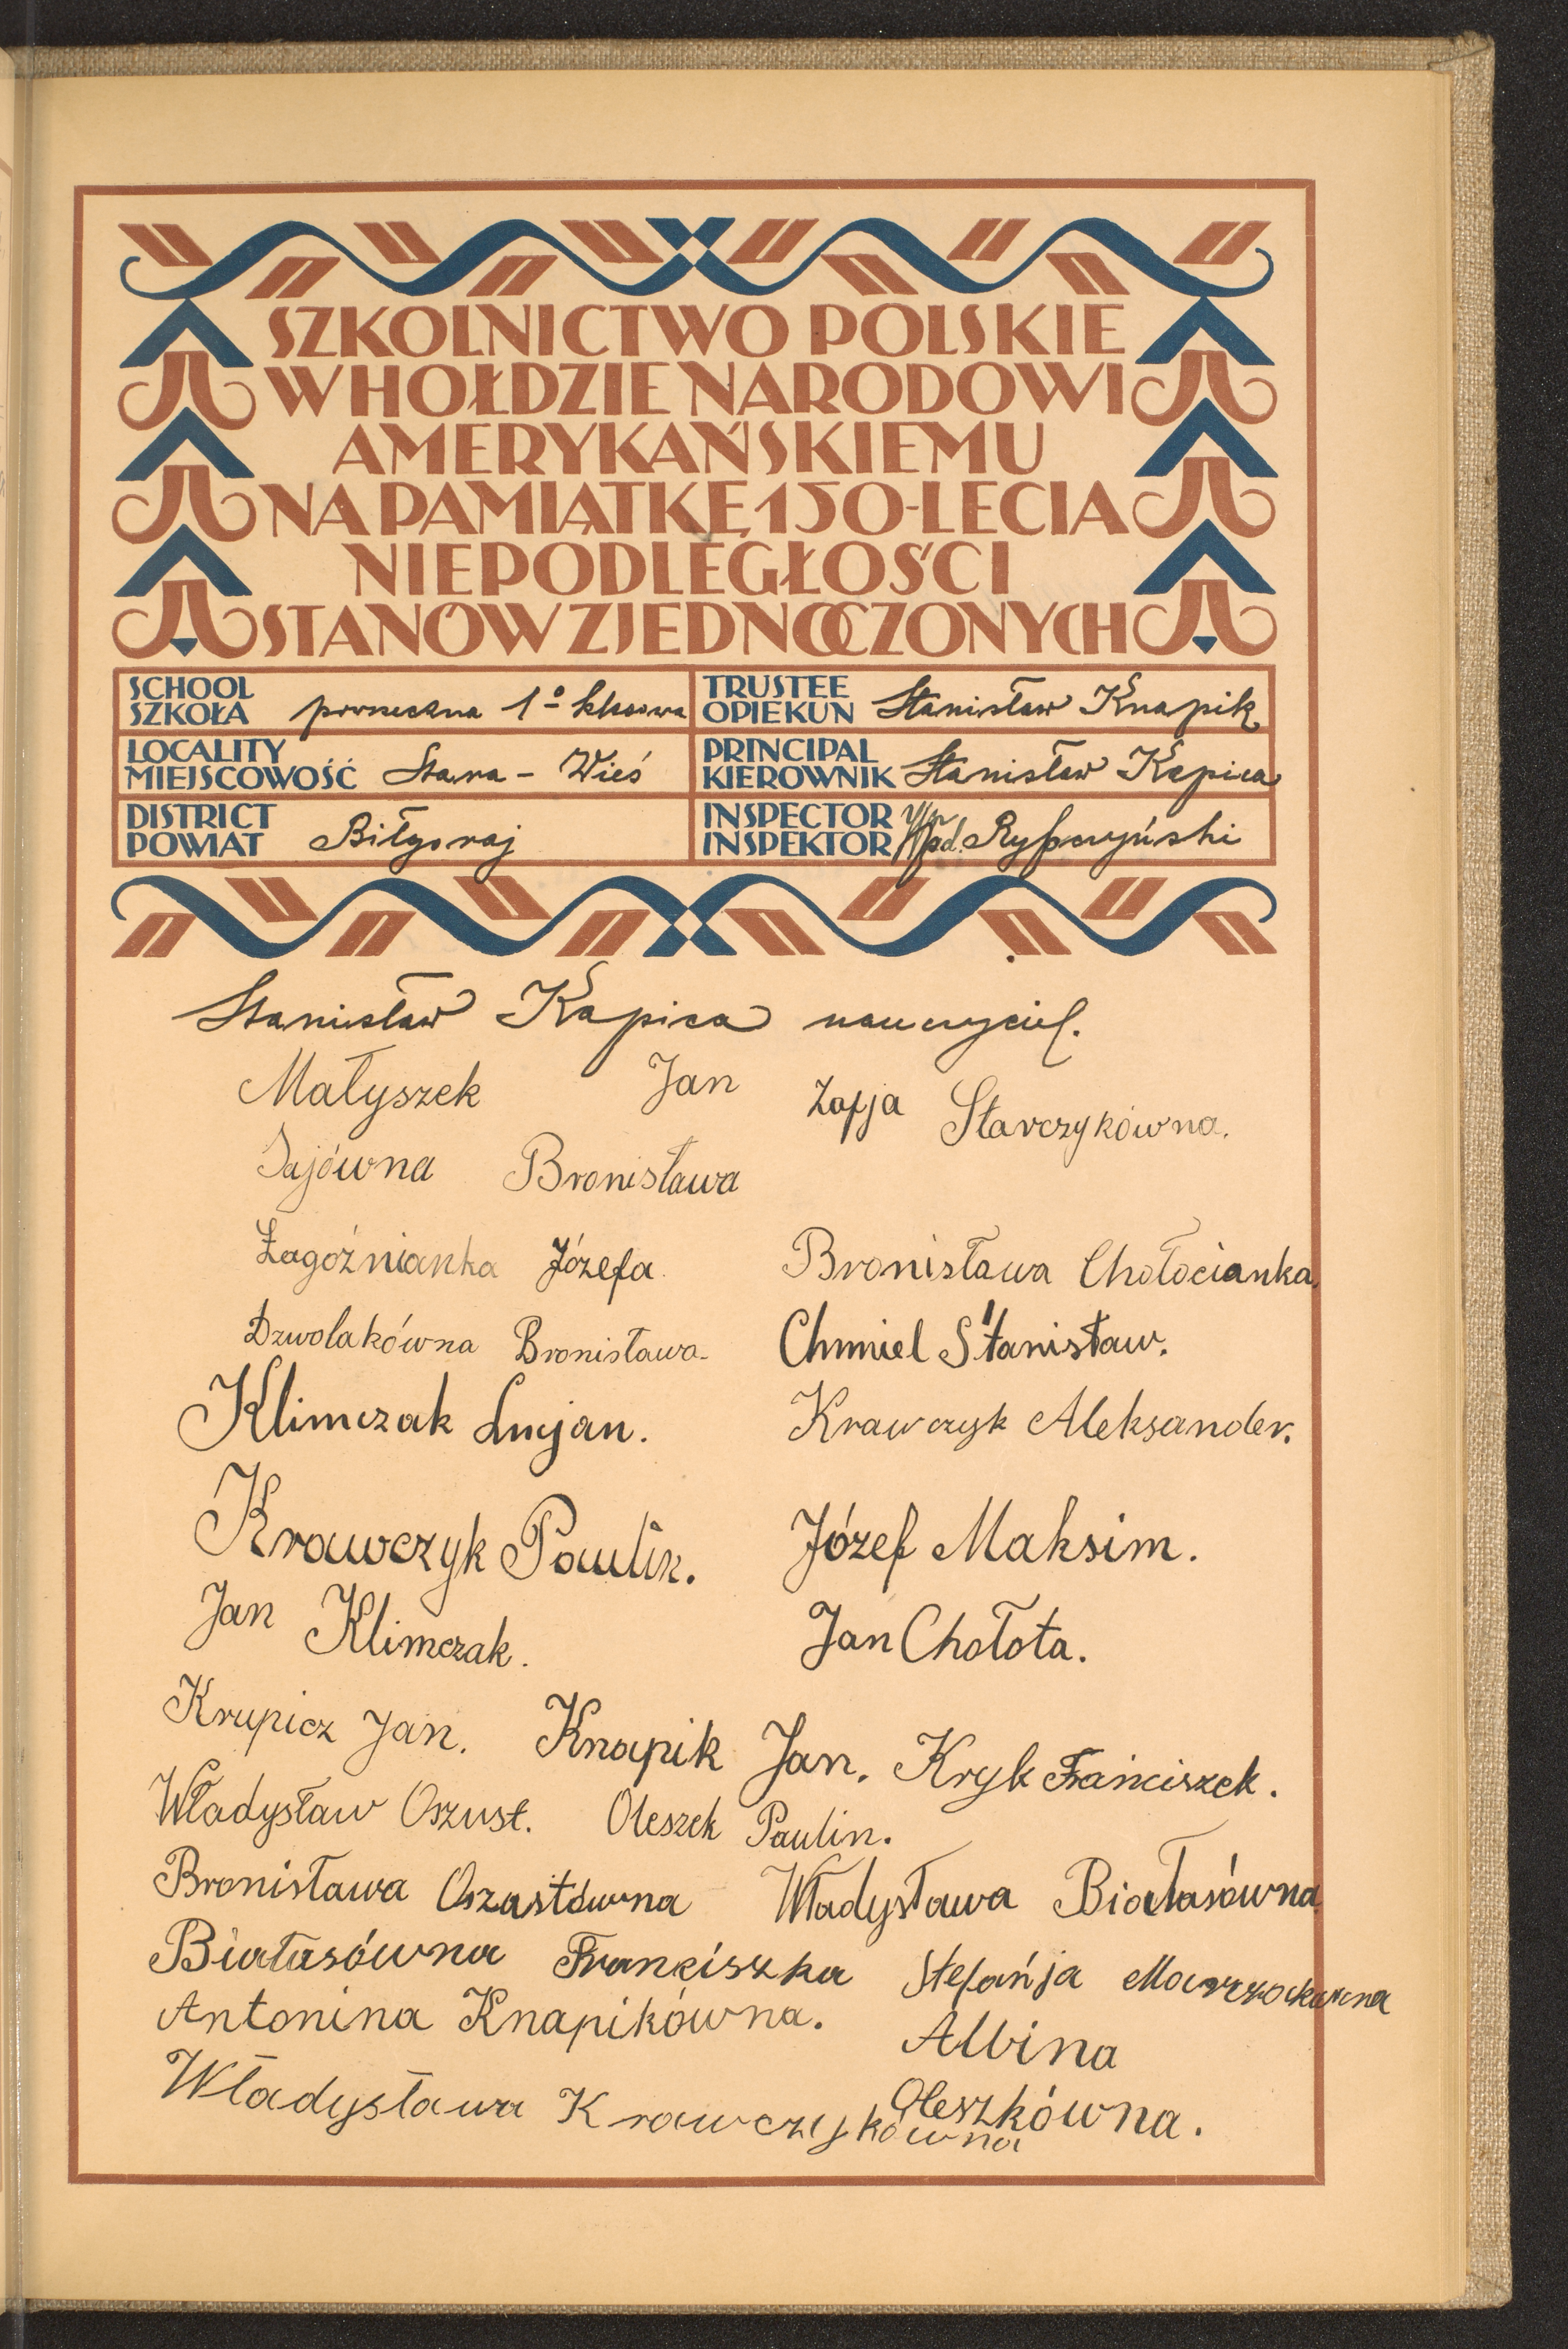 SZKOLNICTWO POLSKIE
W HOŁDZIE NARODOWI
AMERYKAŃSKIEMU
NA PAMIĄTKĘ 150-LECIA
NIEPODLEGŁOŚCI
STANÓW ZJEDNOCZONYCH
SCHOOL
SZKOŁA 1º klasowa
TRUSTEE
OPIEKUN Stanisław Knapik
LOCALITY
MIEJSCOWOŚĆ Stara - Wieś
PRINCIPAL
KIEROWNIK Stanisław Kapica
DISTRICT
POWIAT Biłgoraj
INSPECTOR
INSPEKTOR
Stanisław Kapica nauczyciel.
Małyszek Jan Zofja Starczykówna.
Sajówna Bronisława
Łagoźnianka Józefa
Bronisława Chołocianka.
Dzwolakówna Bronisława
Chmiel Stanisław.
Klimczak Lucjan.
Krawczyk Aleksander.
Krawczyk Paulin.
Józef Maksim.
Jan Klimczak.
Jan Chołota.
Krupicz Jan. Knapik Jan. Kryk Franciszek.
Władysław Oszust. Oleszek Paulin.
Bronisława Oszustówna Władysława Białasówna
Białasówna Franciszka Stefańja
Antonina Knapikówna. Albina
Oleszkówna.
Władysława Krawczykówna